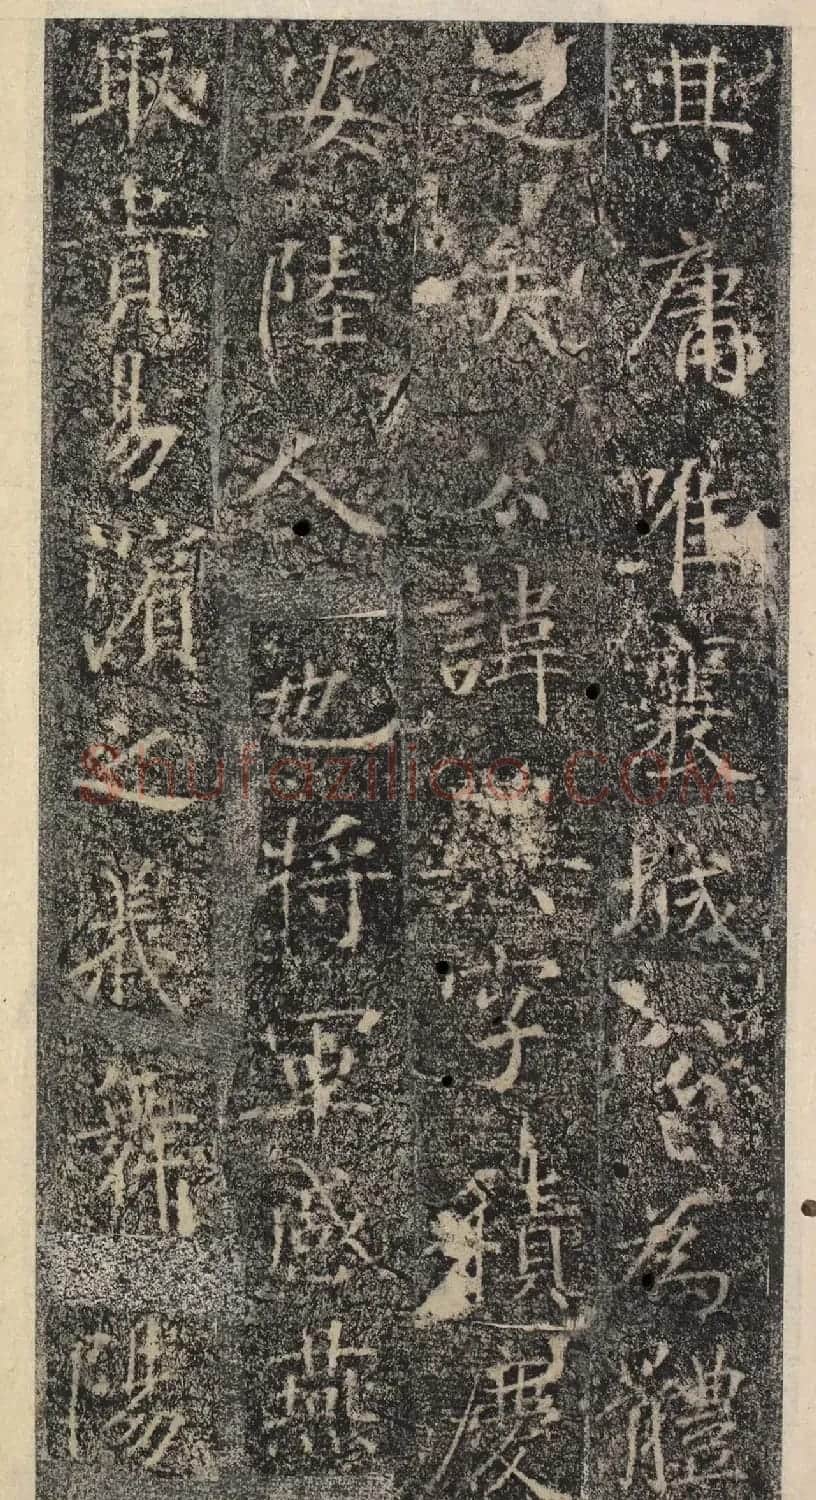 其庸唯襄城公為體
之矣公諱字積慶
安陸人也將軍感燕
取貴易濱之義舞陽
Shufaziliao.COM